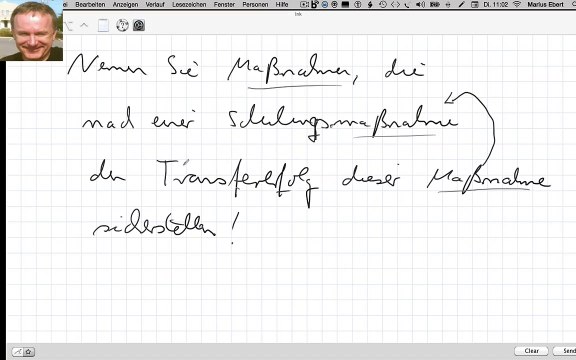 Bearbeiten Anzeigen Verlauf Lesezeichen Fenster Personen Hilfe Di. 11:02 Marius Ebert
Ink
Nennen Sie Maßnahmen, die
nach einer Schulungsmaßnahme
den Transfererfolg dieser Maßnahme
sicherstellen!
Clear Send